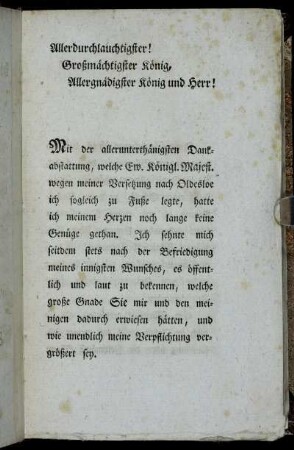 Allerdurchlauchtigster!
Großmächtigster König,
Allergnädigster König und Herr!
Mit der allerunterthänigsten Dank-
abstattung, welche Ew. Königl. Majest.
wegen meiner Versetzung nach Oldesloe
ich sogleich zu Fuße legte, hatte
ich meinem Herzen noch lange keine
Genüge gethan. Ich sehnte mich
seitdem stets nach der Befriedigung
meines innigsten Wunsches, es öffent-
lich und laut zu bekennen, welche
große Gnade Sie mir und den mei-
nigen dadurch erwiesen hätten, und
wie unendlich meine Verpflichtung ver-
größert sey.